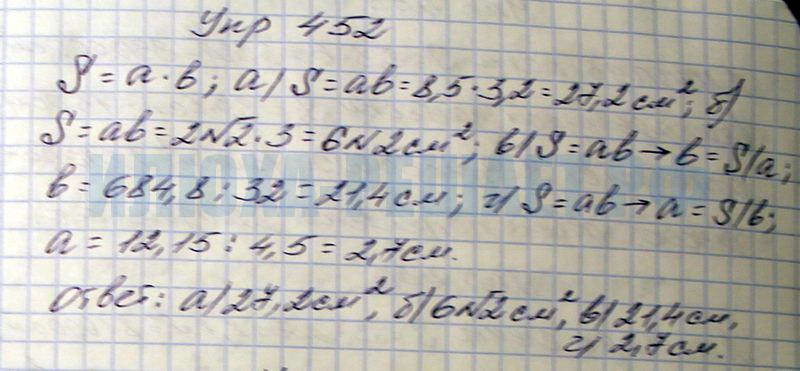 Упр 452
S = a · b; а) S = ab = 8,5 · 3,2 = 27,2 см²; б)
S = ab = 2√2 · 3 = 6√2 см²; в) S = ab → b = S/a;
b = 684,8 : 32 = 21,4 см; г) S = ab → a = S/b;
a = 12,15 : 4,5 = 2,7 см.
Ответ: а) 27,2 см², б) 6√2 см², в) 21,4 см,
г) 2,7 см.